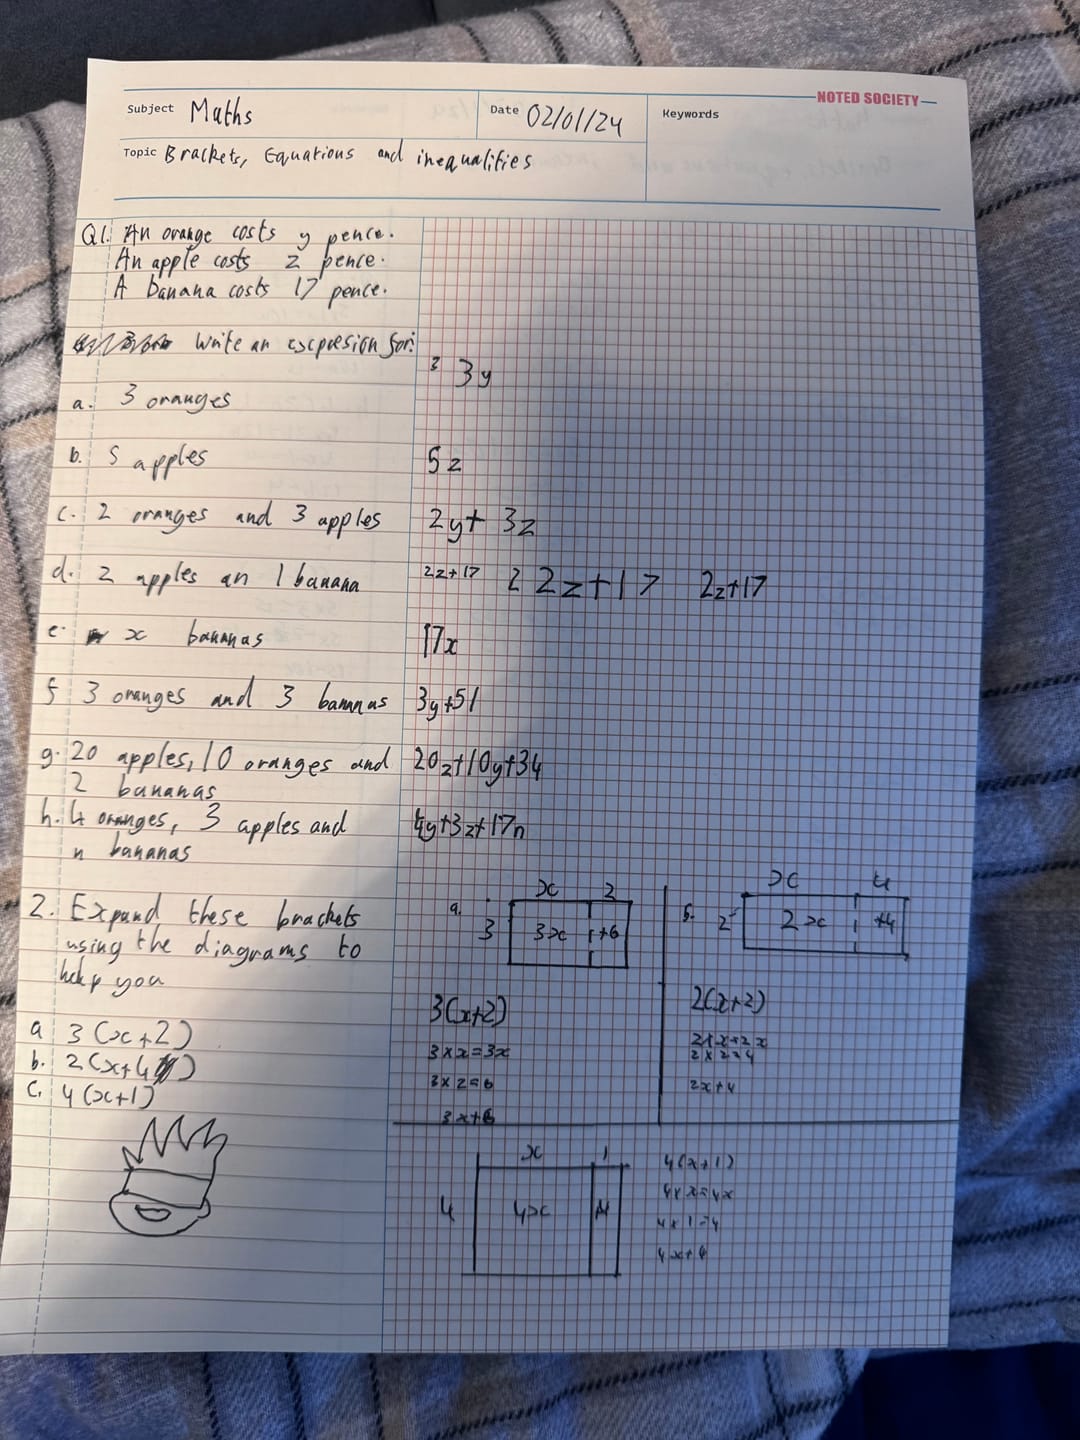 NOTED SOCIETY
Subject Maths
Date 02/01/24
Keywords
Topic Brackets, Equations and inequalities
Q1. An orange costs y pence.
An apple costs z pence.
A banana costs 17 pence.
Write an expression for:
a. 3 oranges
3 3y
b. 5 apples
5z
c. 2 oranges and 3 apples
2y+ 3z
d. 2 apples an 1 banana
2z+17 2 2z+17 2z+17
e. x bananas
17x
f 3 oranges and 3 bananas
3y+51
g. 20 apples, 10 oranges and
2 bananas
20z+10y+34
h. 4 oranges, 3 apples and
n bananas
4y+3z+17n
2. Expand these brackets
using the diagrams to
help you
a 3(x+2)
b. 2(x+4)
c. 4(x+1)
a.
x 2
3 3x +6
3(x+2)
3×x=3x
3×2=6
3x+6
b.
x 4
2 2x +4
2(x+2)
2×x=2x
2×2=4
2x+4
x 1
4 4x 4
4(x+1)
4×x=4x
4×1=4
4x+4